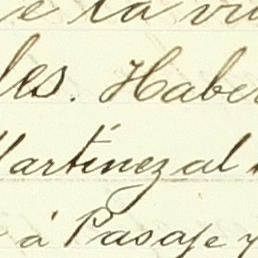 e la vi
les. Haber
Martinez al
á Pasaje y